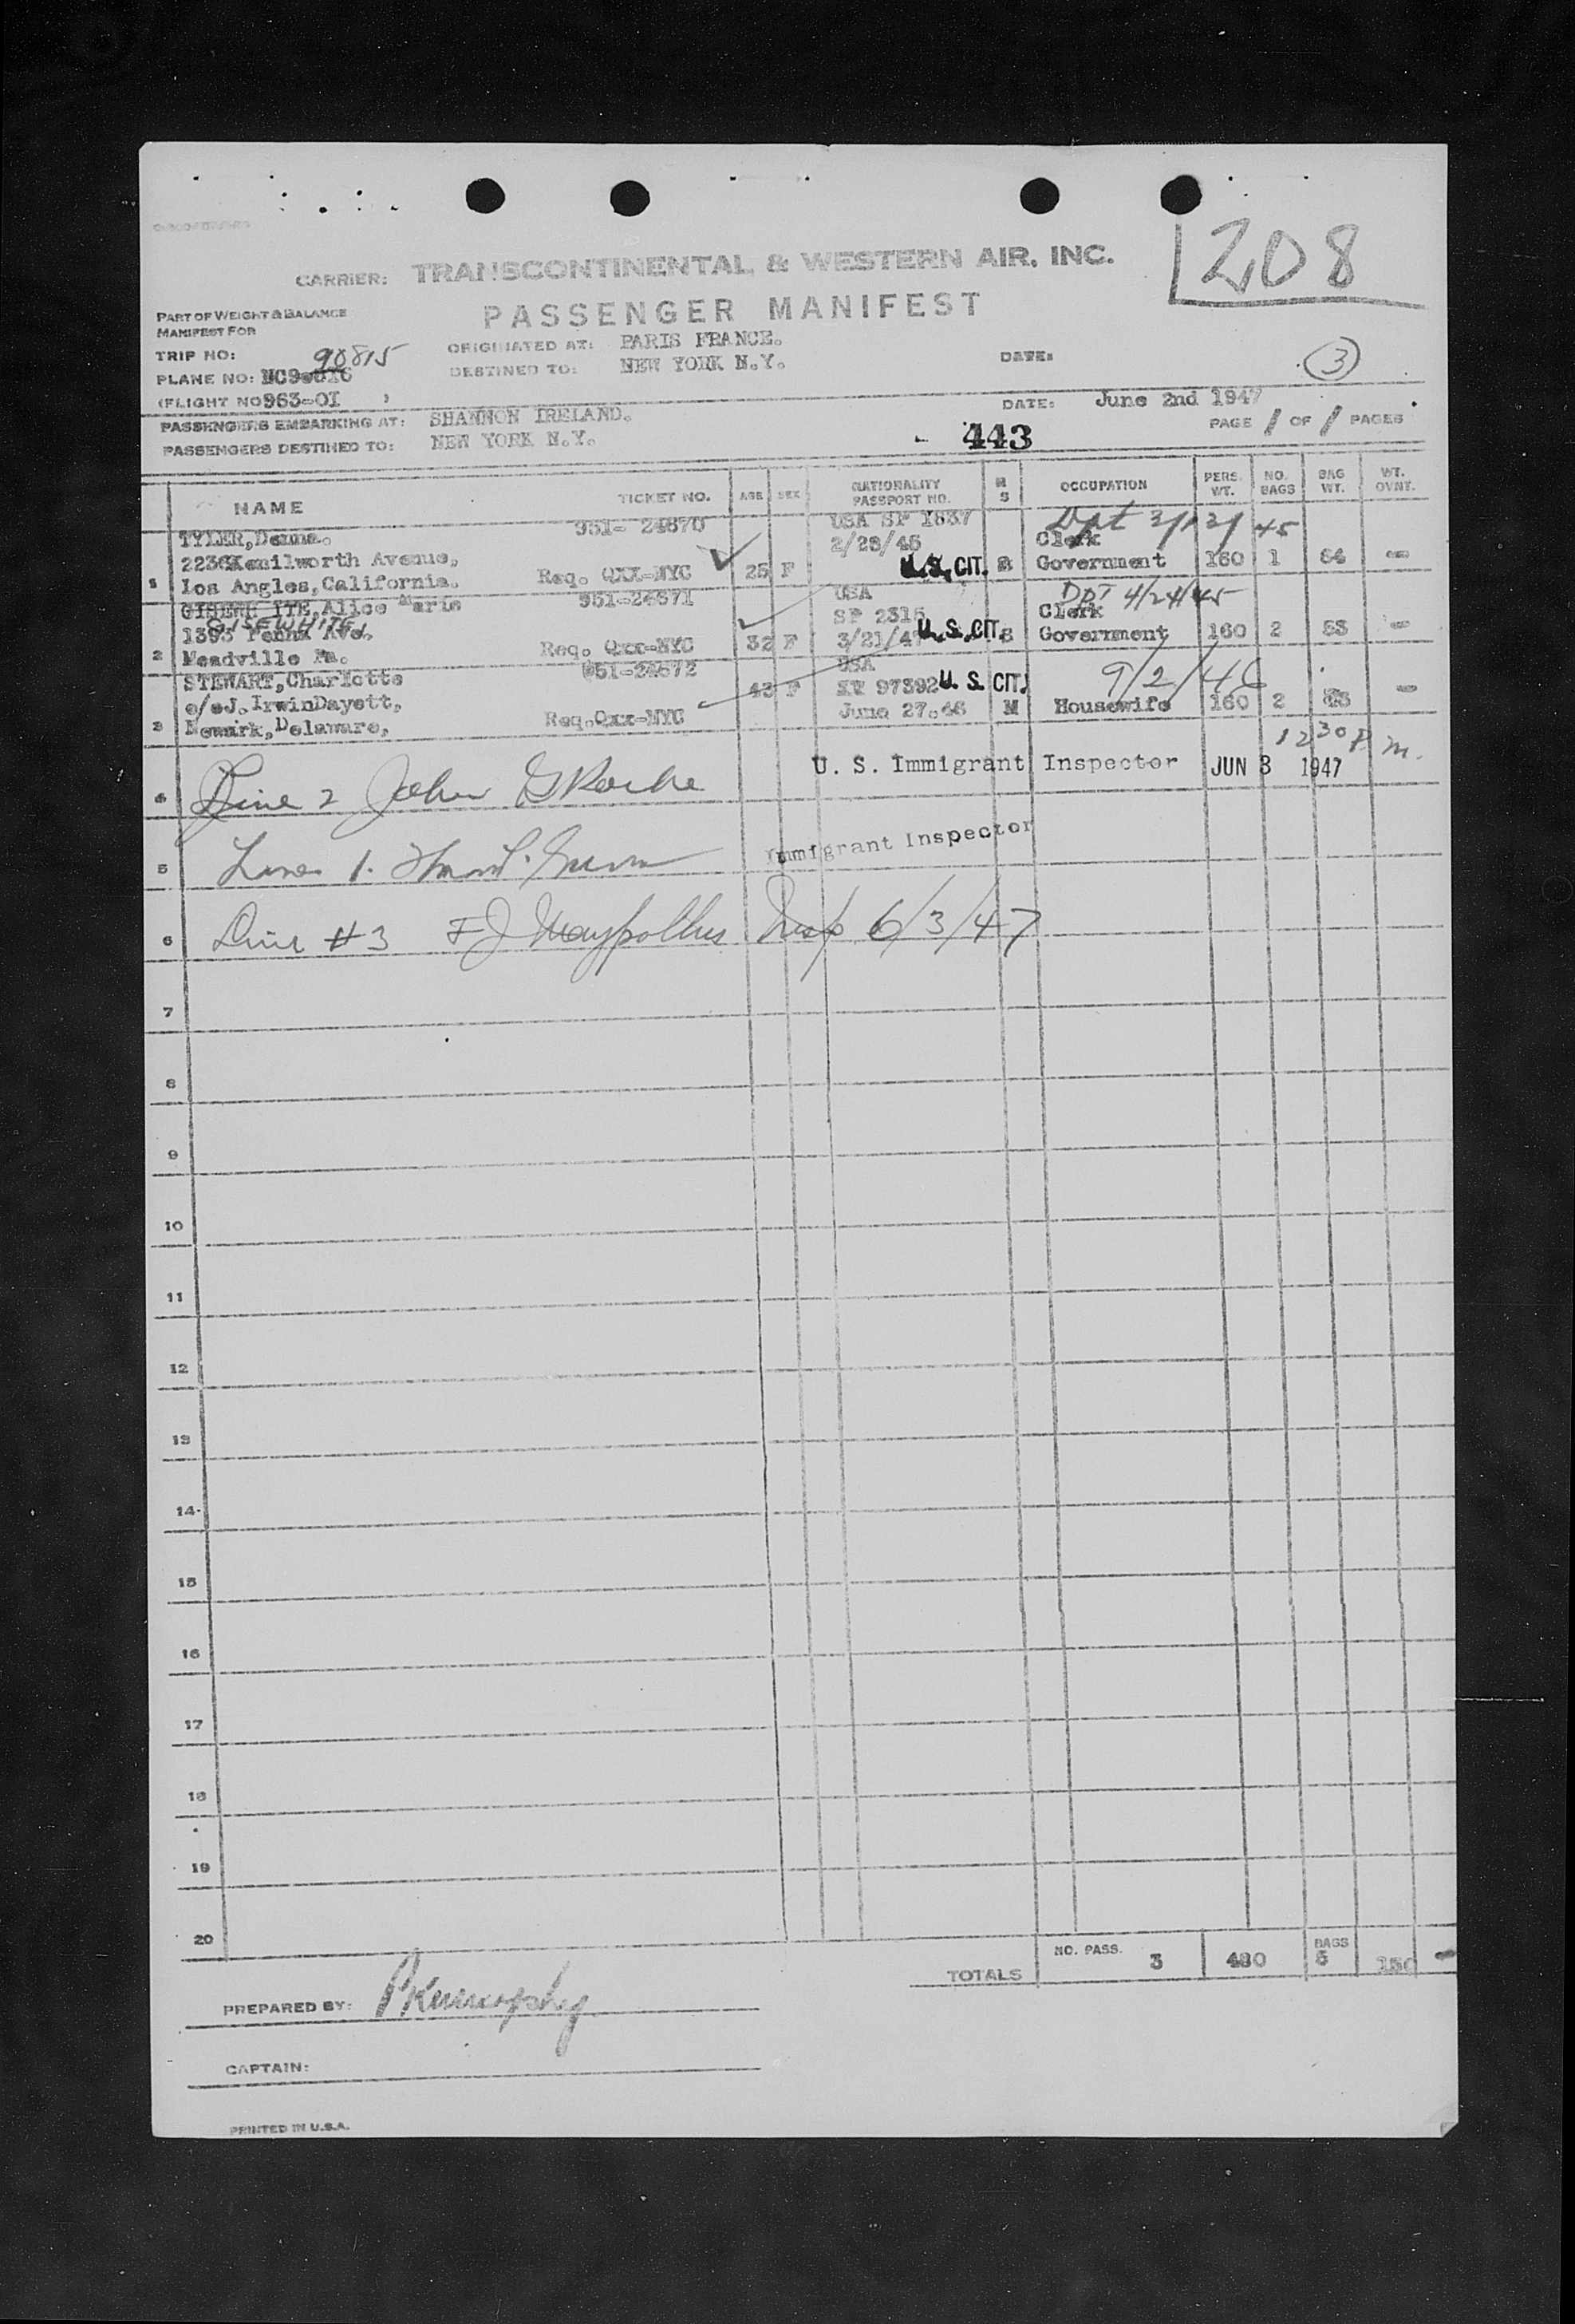 208
CARRIER: TRANSCONTINENTAL & WESTERN AIR, INC.
PASSENGER MANIFEST
PART OF WEIGHT & BALANCE
MANIFEST FOR
TRIP NO: 90815
ORIGINATED AT: PARIS FRANCE.
DATE:
3
PLANE NO:
DESTINED TO: NEW YORK N.Y.
(FLIGHT NO 963-01 )
DATE: June 2nd 1947
PASSENGERS EMBARKING AT: SHANNON IRELAND.
PAGE 1 OF 1 PAGES
PASSENGERS DESTINED TO: NEW YORK N.Y.
443
NAME TICKET NO. AGE SEX NATIONALITY PASSPORT NO. M S OCCUPATION PERS. WT. NO. BAGS BAG WT. WT. OVNT.
TYLER, Donna. 951- 24670 USA SP 1837
2236 Kenilworth Avenue, 2/28/45 Clerk
1 Los Angles, California. Req. QXX-NYC 25 F U.S. CIT. S Government 160 1 54 -
Alice Marie 951-24671 USA Dpt 4/24/45
GISEWHITE, SP 2315 Clerk
1393 Penna Ave. 3/21/47
2 Meadville Pa. Req. Qxx-NYC 32 F U.S. CIT. S Government 160 2 53 -
STEWART, Charlotte 951-24672 USA 9/2/46
c/o J. Irwin Dayett, 43 F 97392 U.S. CIT.
3 Newark, Delaware, Req. Qxx-NYC June 27.46 M Housewife 160 2 -
12 30 P m.
U. S. Immigrant Inspector JUN 3 1947
4 Line 2 John G Roche
5 Line 1. Immigrant Inspector
6 Line #3 F J Insp 6/3/47
7
8
9
10
11
12
13
14
15
16
17
18
19
20
TOTALS NO. PASS. 3 480 BAGS 5 150 -
PREPARED BY:
CAPTAIN:
PRINTED IN U.S.A.